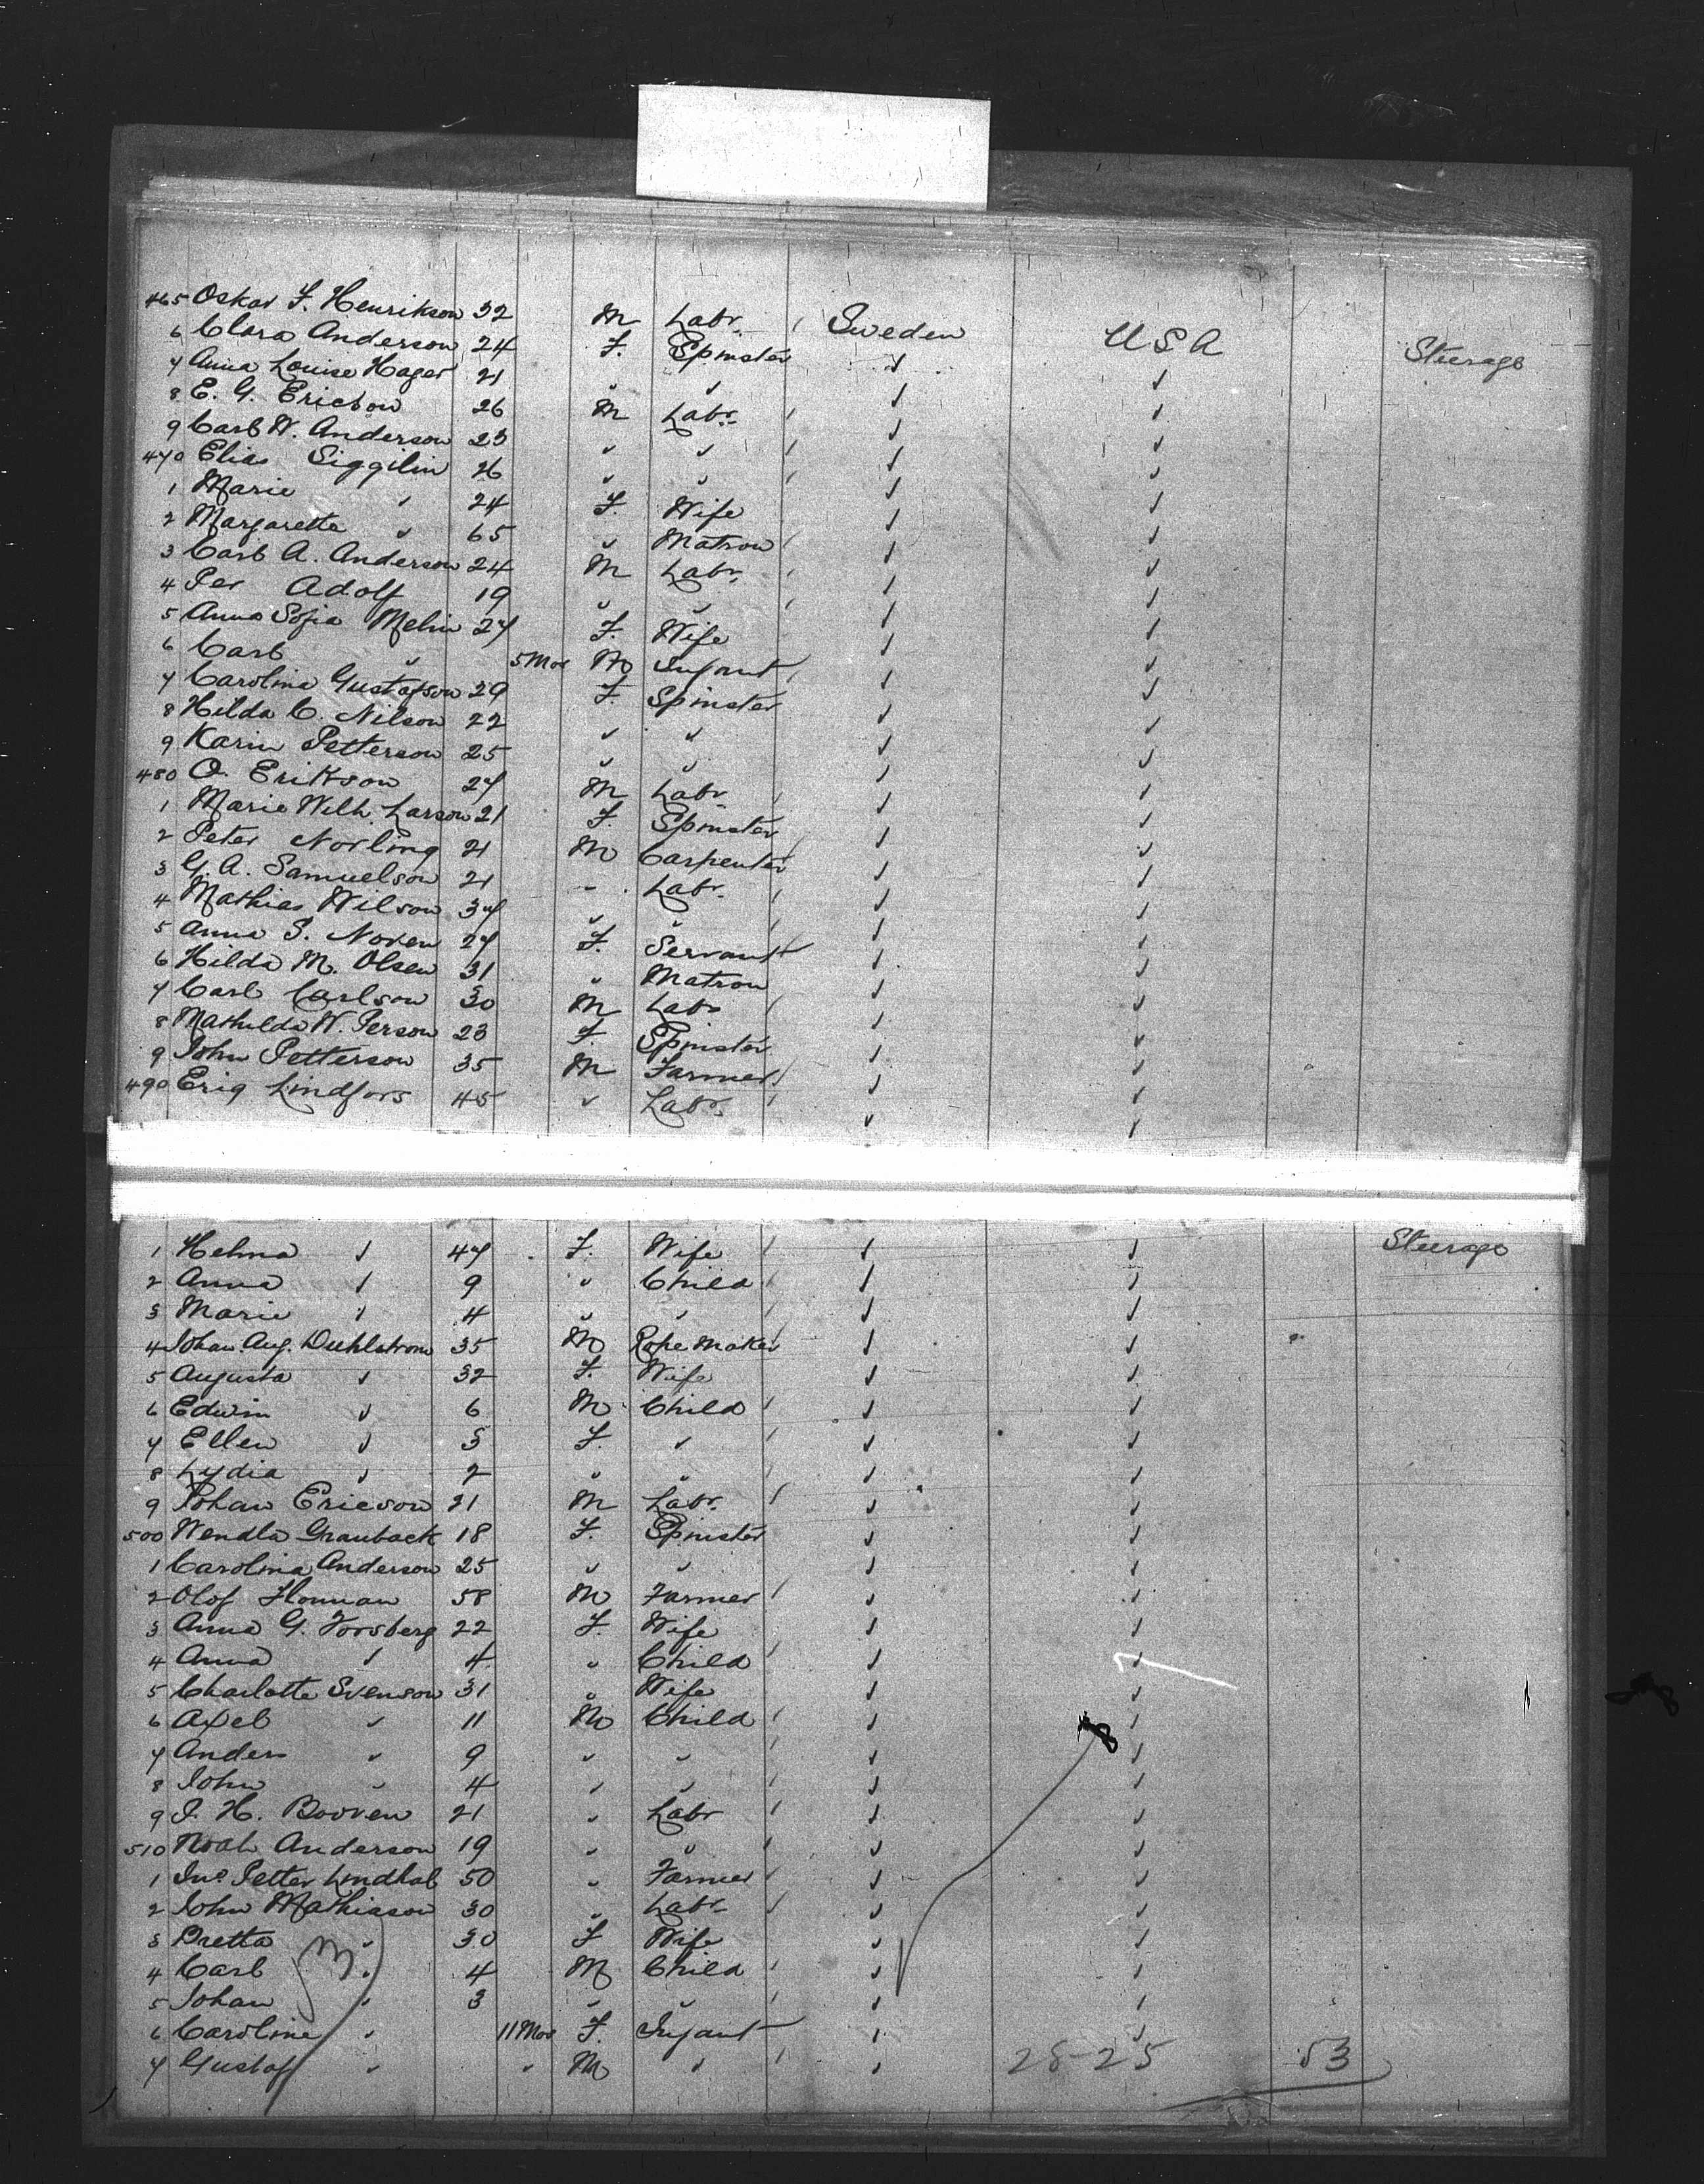 465 Oskar F. Henrikson 32 M Labr. Sweden USA Steerage
6 Clara Anderson 24 F. Spinster ✓ ✓
7 Anna Louise Hager 21 " " ✓ ✓
8 E. G. Ericson 26 M Labr. ✓ ✓
9 Carl W. Anderson 23 " " ✓ ✓
470 Elias Siggilin 26 " " ✓ ✓
1 Marie " 24 F. Wife ✓ ✓
2 Margaretta " 65 " Matron ✓ ✓
3 Carl A. Anderson 24 M Labr. ✓ ✓
4 Per Adolf 19 " " ✓ ✓
5 Anna Sofia Melin 27 F. Wife ✓ ✓
6 Carl " 5 Mos M Infant ✓ ✓
7 Carolina Gustafson 29 F. Spinster ✓ ✓
8 Hilda C. Nilson 22 " " ✓ ✓
9 Karin Petterson 25 " " ✓ ✓
480 O. Erikson 27 M Labr ✓ ✓
1 Marie Wilh. Larson 21 F. Spinster ✓ ✓
2 Peter Norling 21 M Carpenter ✓ ✓
3 G. A. Samuelson 21 " Labr. ✓ ✓
4 Mathias Wilson 37 " " ✓ ✓
5 Anna S. Noren 27 F. Servant ✓ ✓
6 Hilda M. Olsen 31 " Matron ✓ ✓
7 Carl Carlson 30 M Labr ✓ ✓
8 Mathilda W. Person 23 F. Spinster ✓ ✓
9 John Petterson 35 M Farmer ✓ ✓
490 Eriq Lindfors 45 " Labr. ✓ ✓
1 Helma " 47 F. Wife ✓ ✓ Steerage
2 Anna " 9 " Child ✓ ✓
3 Marie " 4 " " ✓ ✓
4 Johan Aug. Duhlstrom 35 M Rope Maker ✓ ✓
5 Augusta " 32 F. Wife ✓ ✓
6 Edwin " 6 M Child ✓ ✓
7 Ellen " 3 F. " ✓ ✓
8 Lydia " 2 " " ✓ ✓
9 Johan Ericson 21 M Labr. ✓ ✓
500 Wendla Grauback 18 F. Spinster ✓ ✓
1 Carolina Anderson 25 " " ✓ ✓
2 Olof Floman 58 M Farmer ✓ ✓
3 Anna G. Forsberg 22 F. Wife ✓ ✓
4 Anna " 4 " Child ✓ ✓
5 Charlotte Svenson 31 " Wife ✓ ✓
6 Axel " 11 M Child ✓ ✓
7 Anders " 9 " " ✓ ✓
8 John " 4 " " ✓ ✓
9 J. H. Booren 21 " Labr ✓ ✓
510 Noah Anderson 19 " " ✓ ✓
1 Jno. Petter Lindhal 50 " Farmer ✓ ✓
2 John Mathiason 30 " Labr. ✓ ✓
3 Bretta " 30 F Wife ✓ ✓
4 Carl " 4 M Child ✓ ✓
5 Johan " 3 " " ✓ ✓
6 Caroline " 11 Mos F. Infant ✓ ✓
7 Gustaf " " M " ✓ 28-25 53